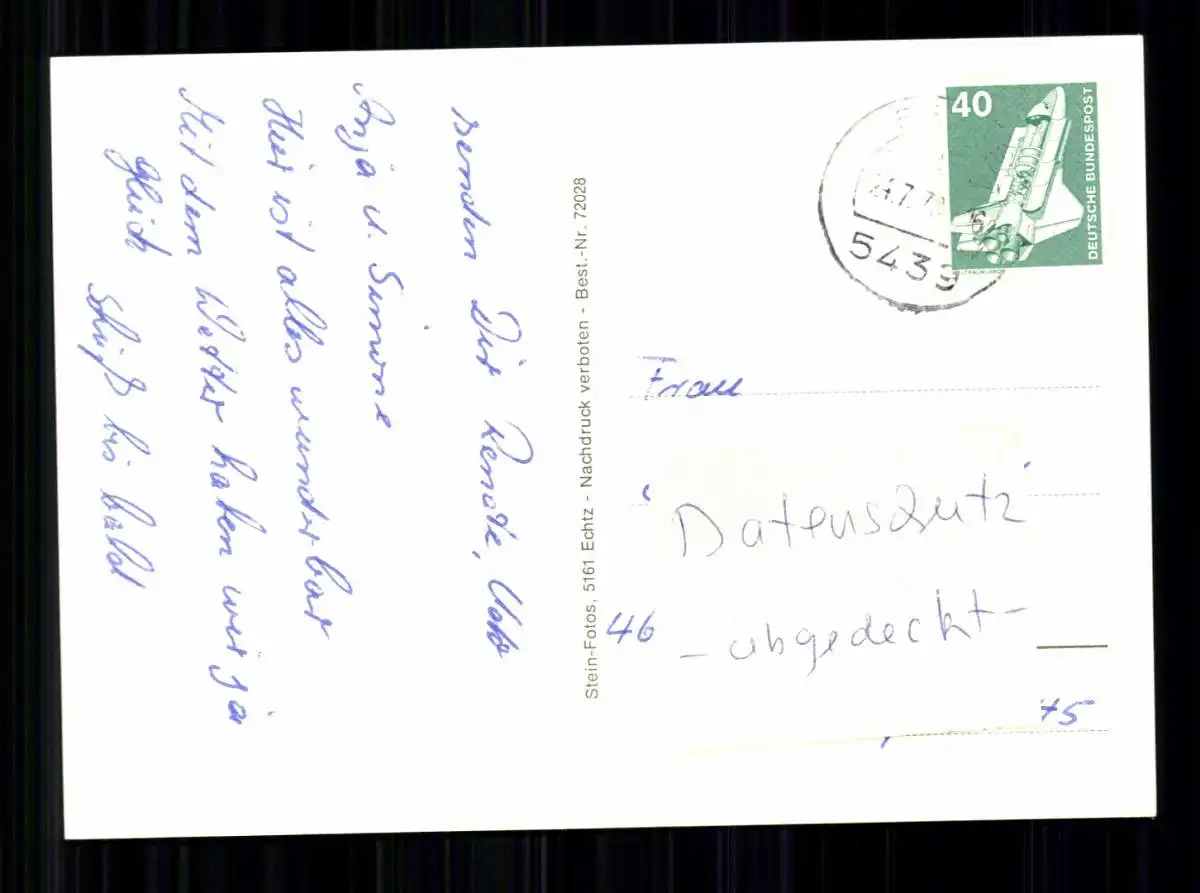 senden Dir Renate,
Anja u. Simone
Hier ist alles wunderbar
Mit dem Wetter haben wir ja
Glück
bis bald
Stein-Fotos, 5161 Echtz - Nachdruck verboten - Best.-Nr. 72028
40
DEUTSCHE BUNDESPOST
5439
Frau
Datenschutz
- abgedeckt -
46
75